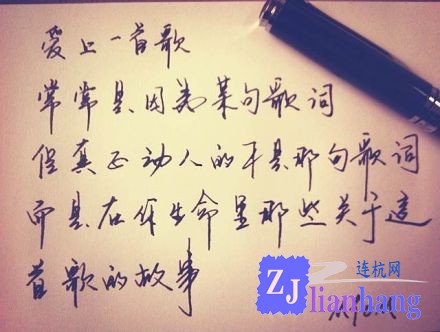 爱上一首歌
常常是因为某句歌词
但真正动人的不是那句歌词
而是在你生命里那些关于这
首歌的故事
连杭网
ZJ lianhang